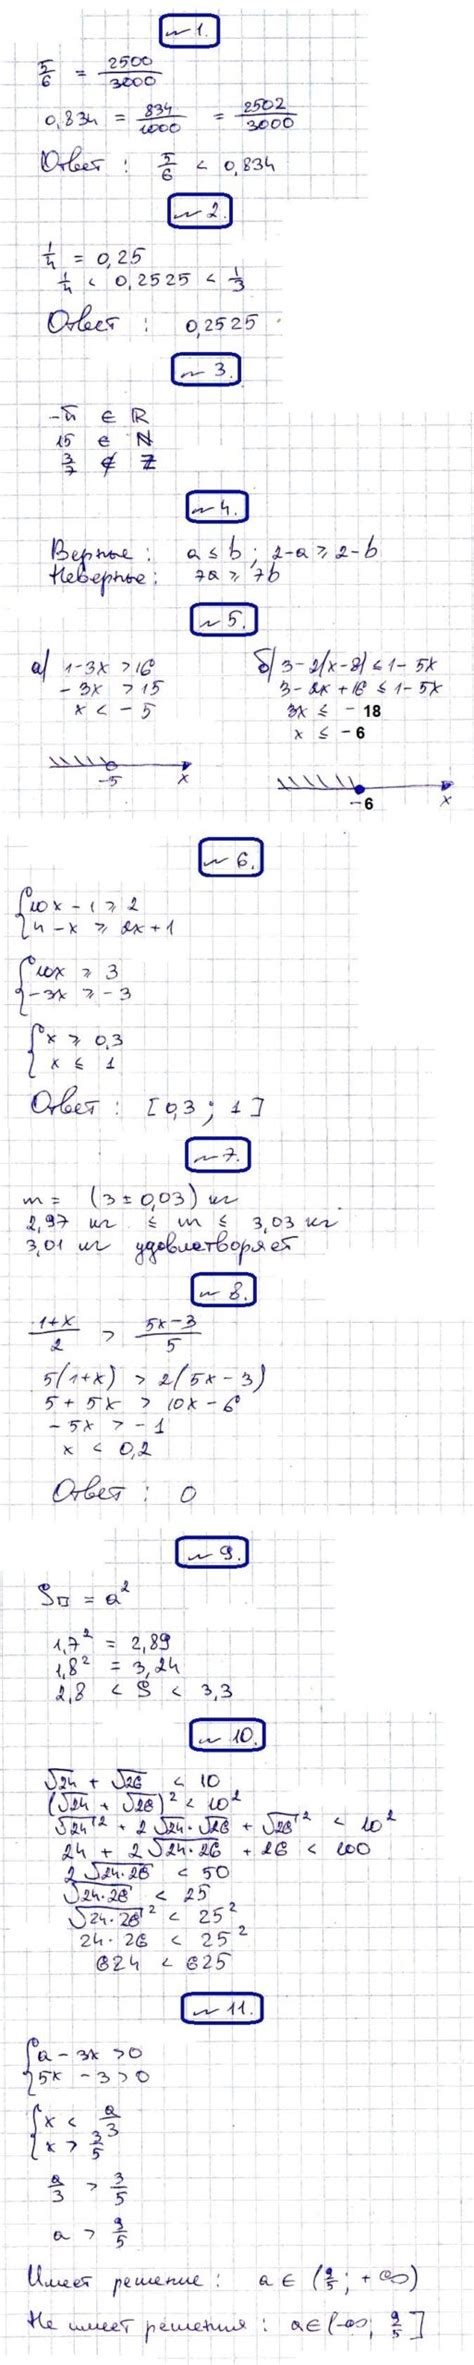 № 1.
5/6 = 2500/3000
0,834 = 834/1000 = 2502/3000
Ответ : 5/6 < 0,834
№ 2.
1/4 = 0,25
1/4 < 0,2525 < 1/3
Ответ : 0,2525
№ 3.
-4 ∈ R
15 ∈ N
3/7 ∉ Z
№ 4.
Верные : a ≤ b ; 2-a ≥ 2-b
Неверные : 7a ≥ 7b
№ 5.
а) 1-3x > 16
-3x > 15
x < -5
-5 x
б) 3-2(x-8) ≤ 1-5x
3-2x+16 ≤ 1-5x
3x ≤ -18
x ≤ -6
-6 x
№ 6.
{10x - 1 ≥ 2
4 - x ≥ 2x+1
{10x ≥ 3
-3x ≥ -3
{x ≥ 0,3
x ≤ 1
Ответ : [0,3 ; 1]
№ 7.
m = (3 ± 0,03) кг
2,97 кг ≤ m ≤ 3,03 кг
3,01 кг удовлетворяет
№ 8.
1+x/2 > 5x-3/5
5(1+x) > 2(5x-3)
5 + 5x > 10x - 6
-5x > -1
x < 0,2
Ответ : 0
№ 9.
S□ = a²
1,7² = 2,89
1,8² = 3,24
2,8 < S < 3,3
№ 10.
√24 + √26 < 10
(√24 + √26)² < 10²
√24² + 2√24·√26 + √26² < 10²
24 + 2√24·26 + 26 < 100
2√24·26 < 50
√24·26 < 25
√24·26² < 25²
24·26 < 25²
624 < 625
№ 11.
{a - 3x > 0
5x - 3 > 0
{x < a/3
x > 3/5
a/3 > 3/5
a > 9/5
Имеет решение : a ∈ (9/5 ; +∞)
Не имеет решения : a ∈ (-∞; 9/5]